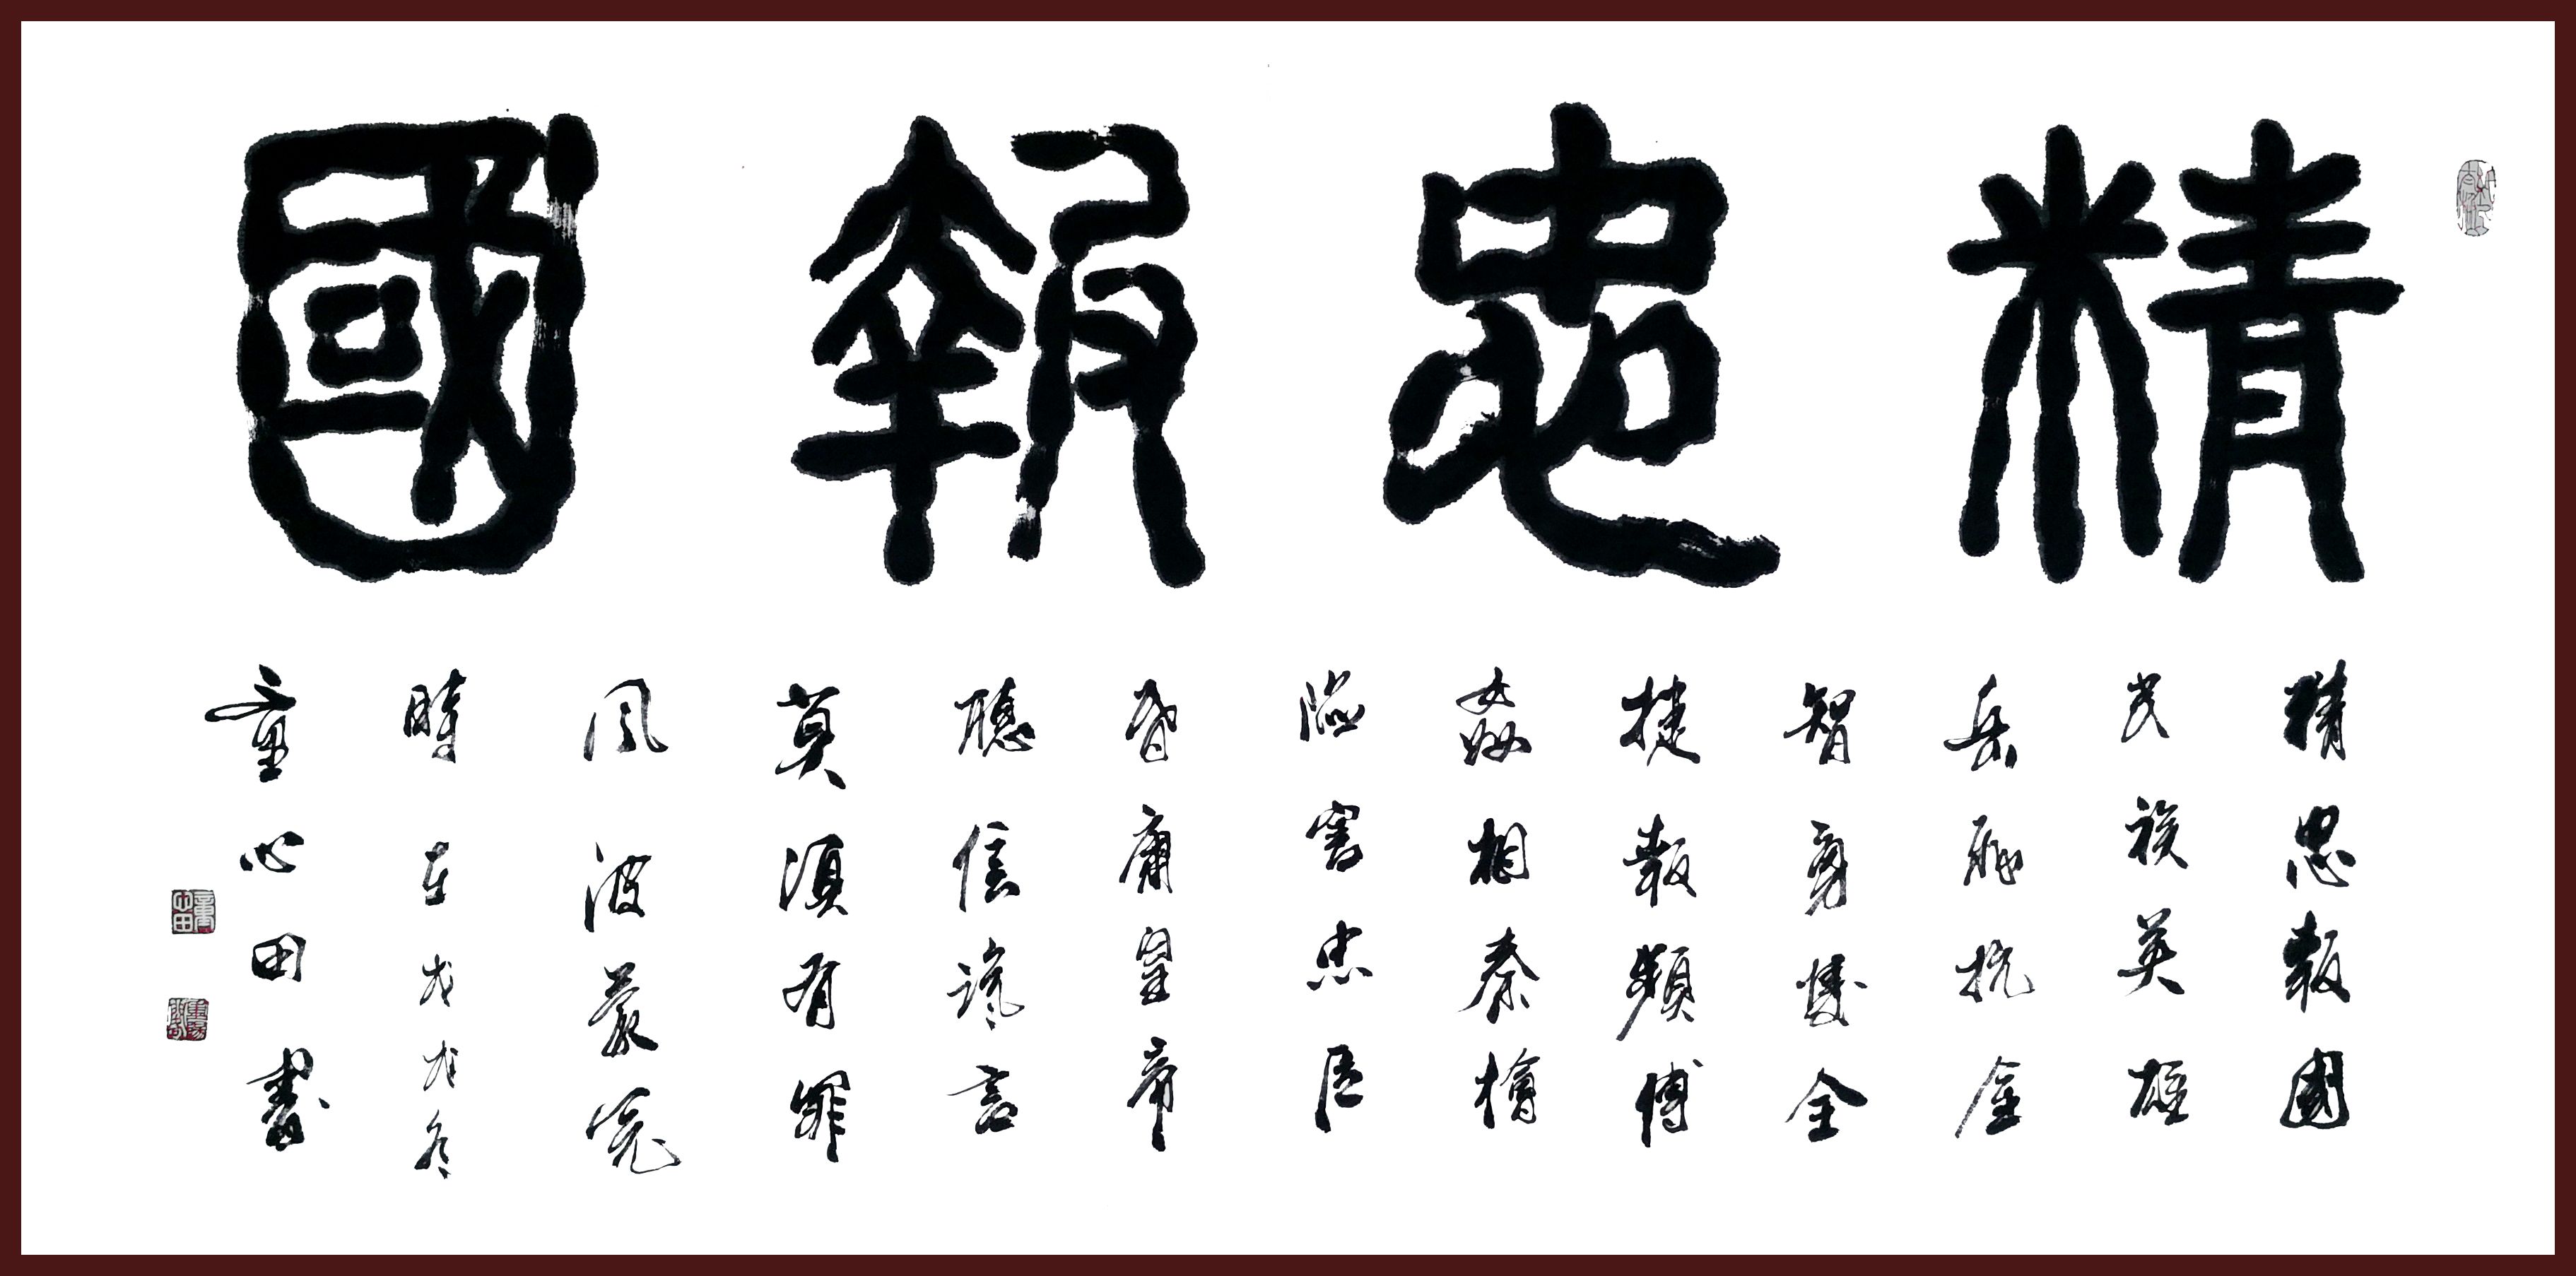 精忠報國
精忠報國
民族英雄
岳飛抗金
智勇雙全
捷報頻傳
姦相秦檜
陷害忠臣
昏庸皇帝
聽信讒言
莫須有罪
風波蒙冤
時在戊戌冬
童心田書